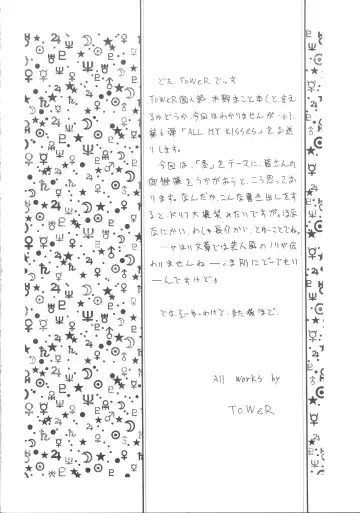 ども ToWeR でっす
ToWeR個人誌、木野まこと本(と、言え
るかどうか、今回はわかりませんが…)
第6弾「ALL MY KISSES」をお送
りします。
今回は、「冬」をテーマに、皆さんの
御機嫌をうかがおうと、こう思ってお
ります。なんだか、こんな書き出しをす
ると、ドリフ大爆笑みたいですが。ほな
なにかい、わしゃ長介かい、とゆーことでね。
…やはり文章では芸人風のノリが伝
わりませんねー。ま別にどーでもい
ーんですけど。
では、そーゆーわけで、また後ほど。
All works by
ToWeR